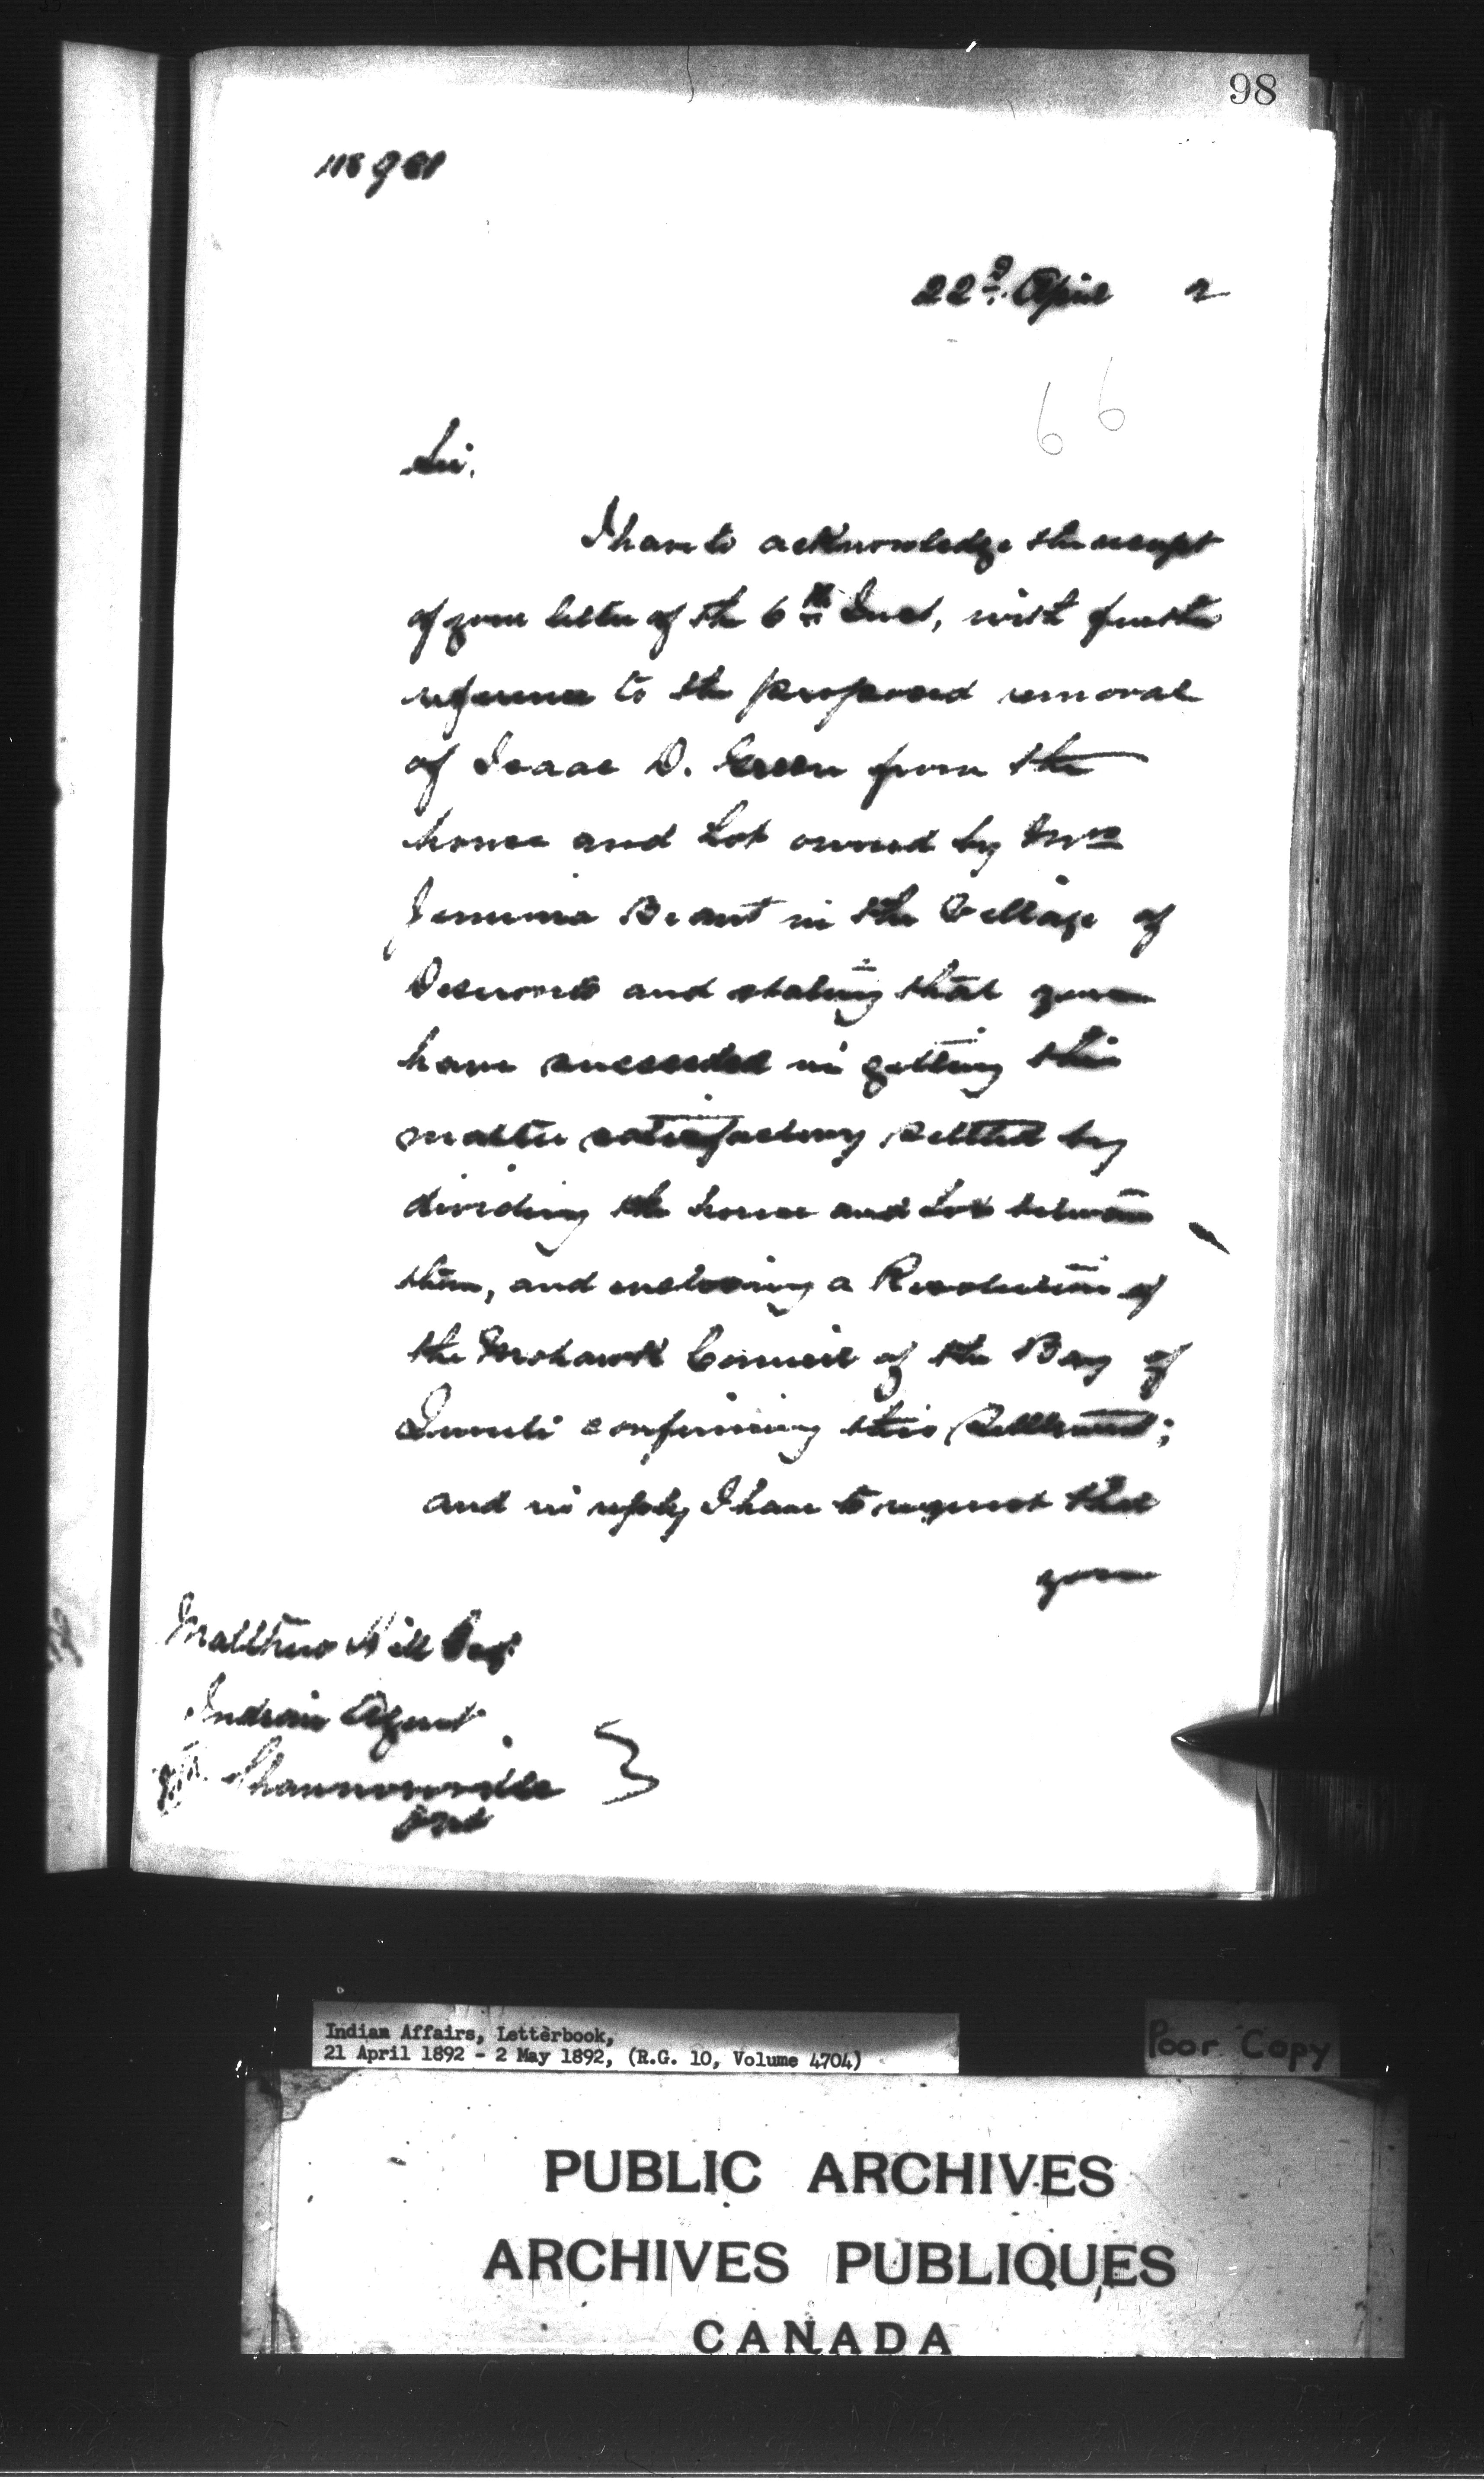 98
22d. April 2
6 6
Sir.
I have to acknowledge the receipt
of your letter of the 6th Inst, with further
reference to the proposed removal
of Isaac D. Green from the
house and Lot owned by Mrs
Jemima Brant in the Village of
Deseronto and stating that you
have succeeded in getting this
matter satisfactory settled by
dividing the house and Lot between
them, and enclosing a Resolution of
the Mohawk Council of the Bay of
Quinté confirming this Settlement;
and in reply I have to request that
you
Matthew Hill Esq.
Indian Agent
Shannonville
Ont
Indian Affairs, Letterbook,
21 April 1892 - 2 May 1892, (R.G. 10, Volume 4704)
Poor Copy
PUBLIC ARCHIVES
ARCHIVES PUBLIQUES
CANADA